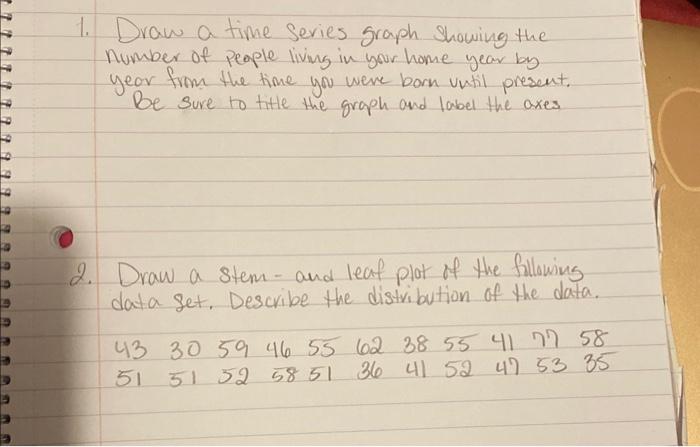 1. Draw a time series graph showing the
number of people living in your home year by
year from the time you were born until present.
Be sure to title the graph and label the axes
2. Draw a stem - and leaf plot of the following
data set. Describe the distribution of the data.
43 30 59 46 55 62 38 55 41 77 58
51 51 52 58 51 36 41 52 47 53 35